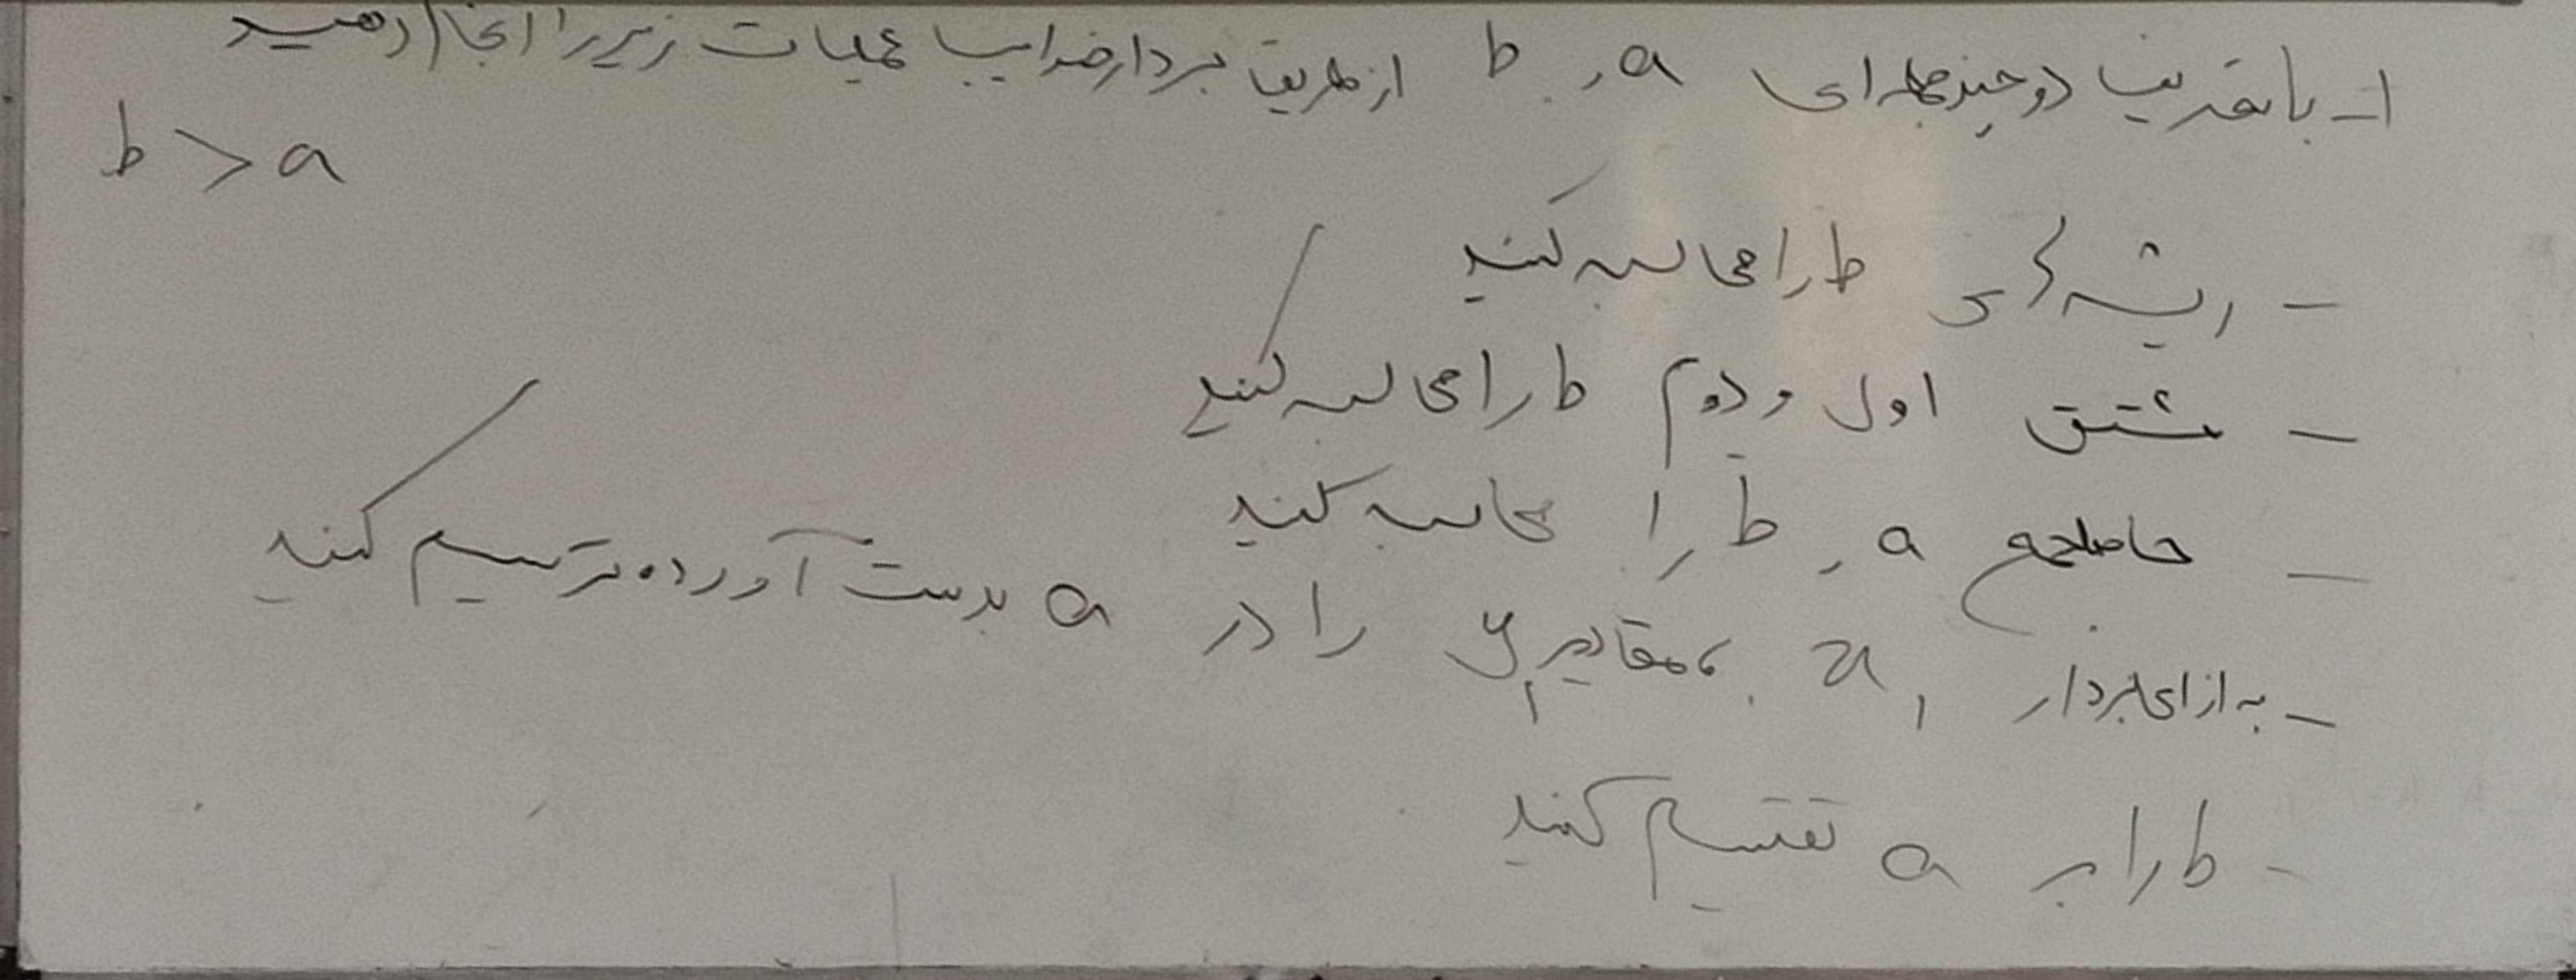 ۱- با تعریف دو چندجمله‌ای a و b از طریق بردار ضرایب عملیات زیر را انجام دهید
b > a
- ریشه‌های b را محاسبه کنید
- مشتق اول و دوم b را محاسبه کنید
- حاصلجمع a و b را محاسبه کنید
- به ازای بردار x₁ مقادیر y₁ را در a بدست آورده ترسیم کنید
- b را بر a تقسیم کنید